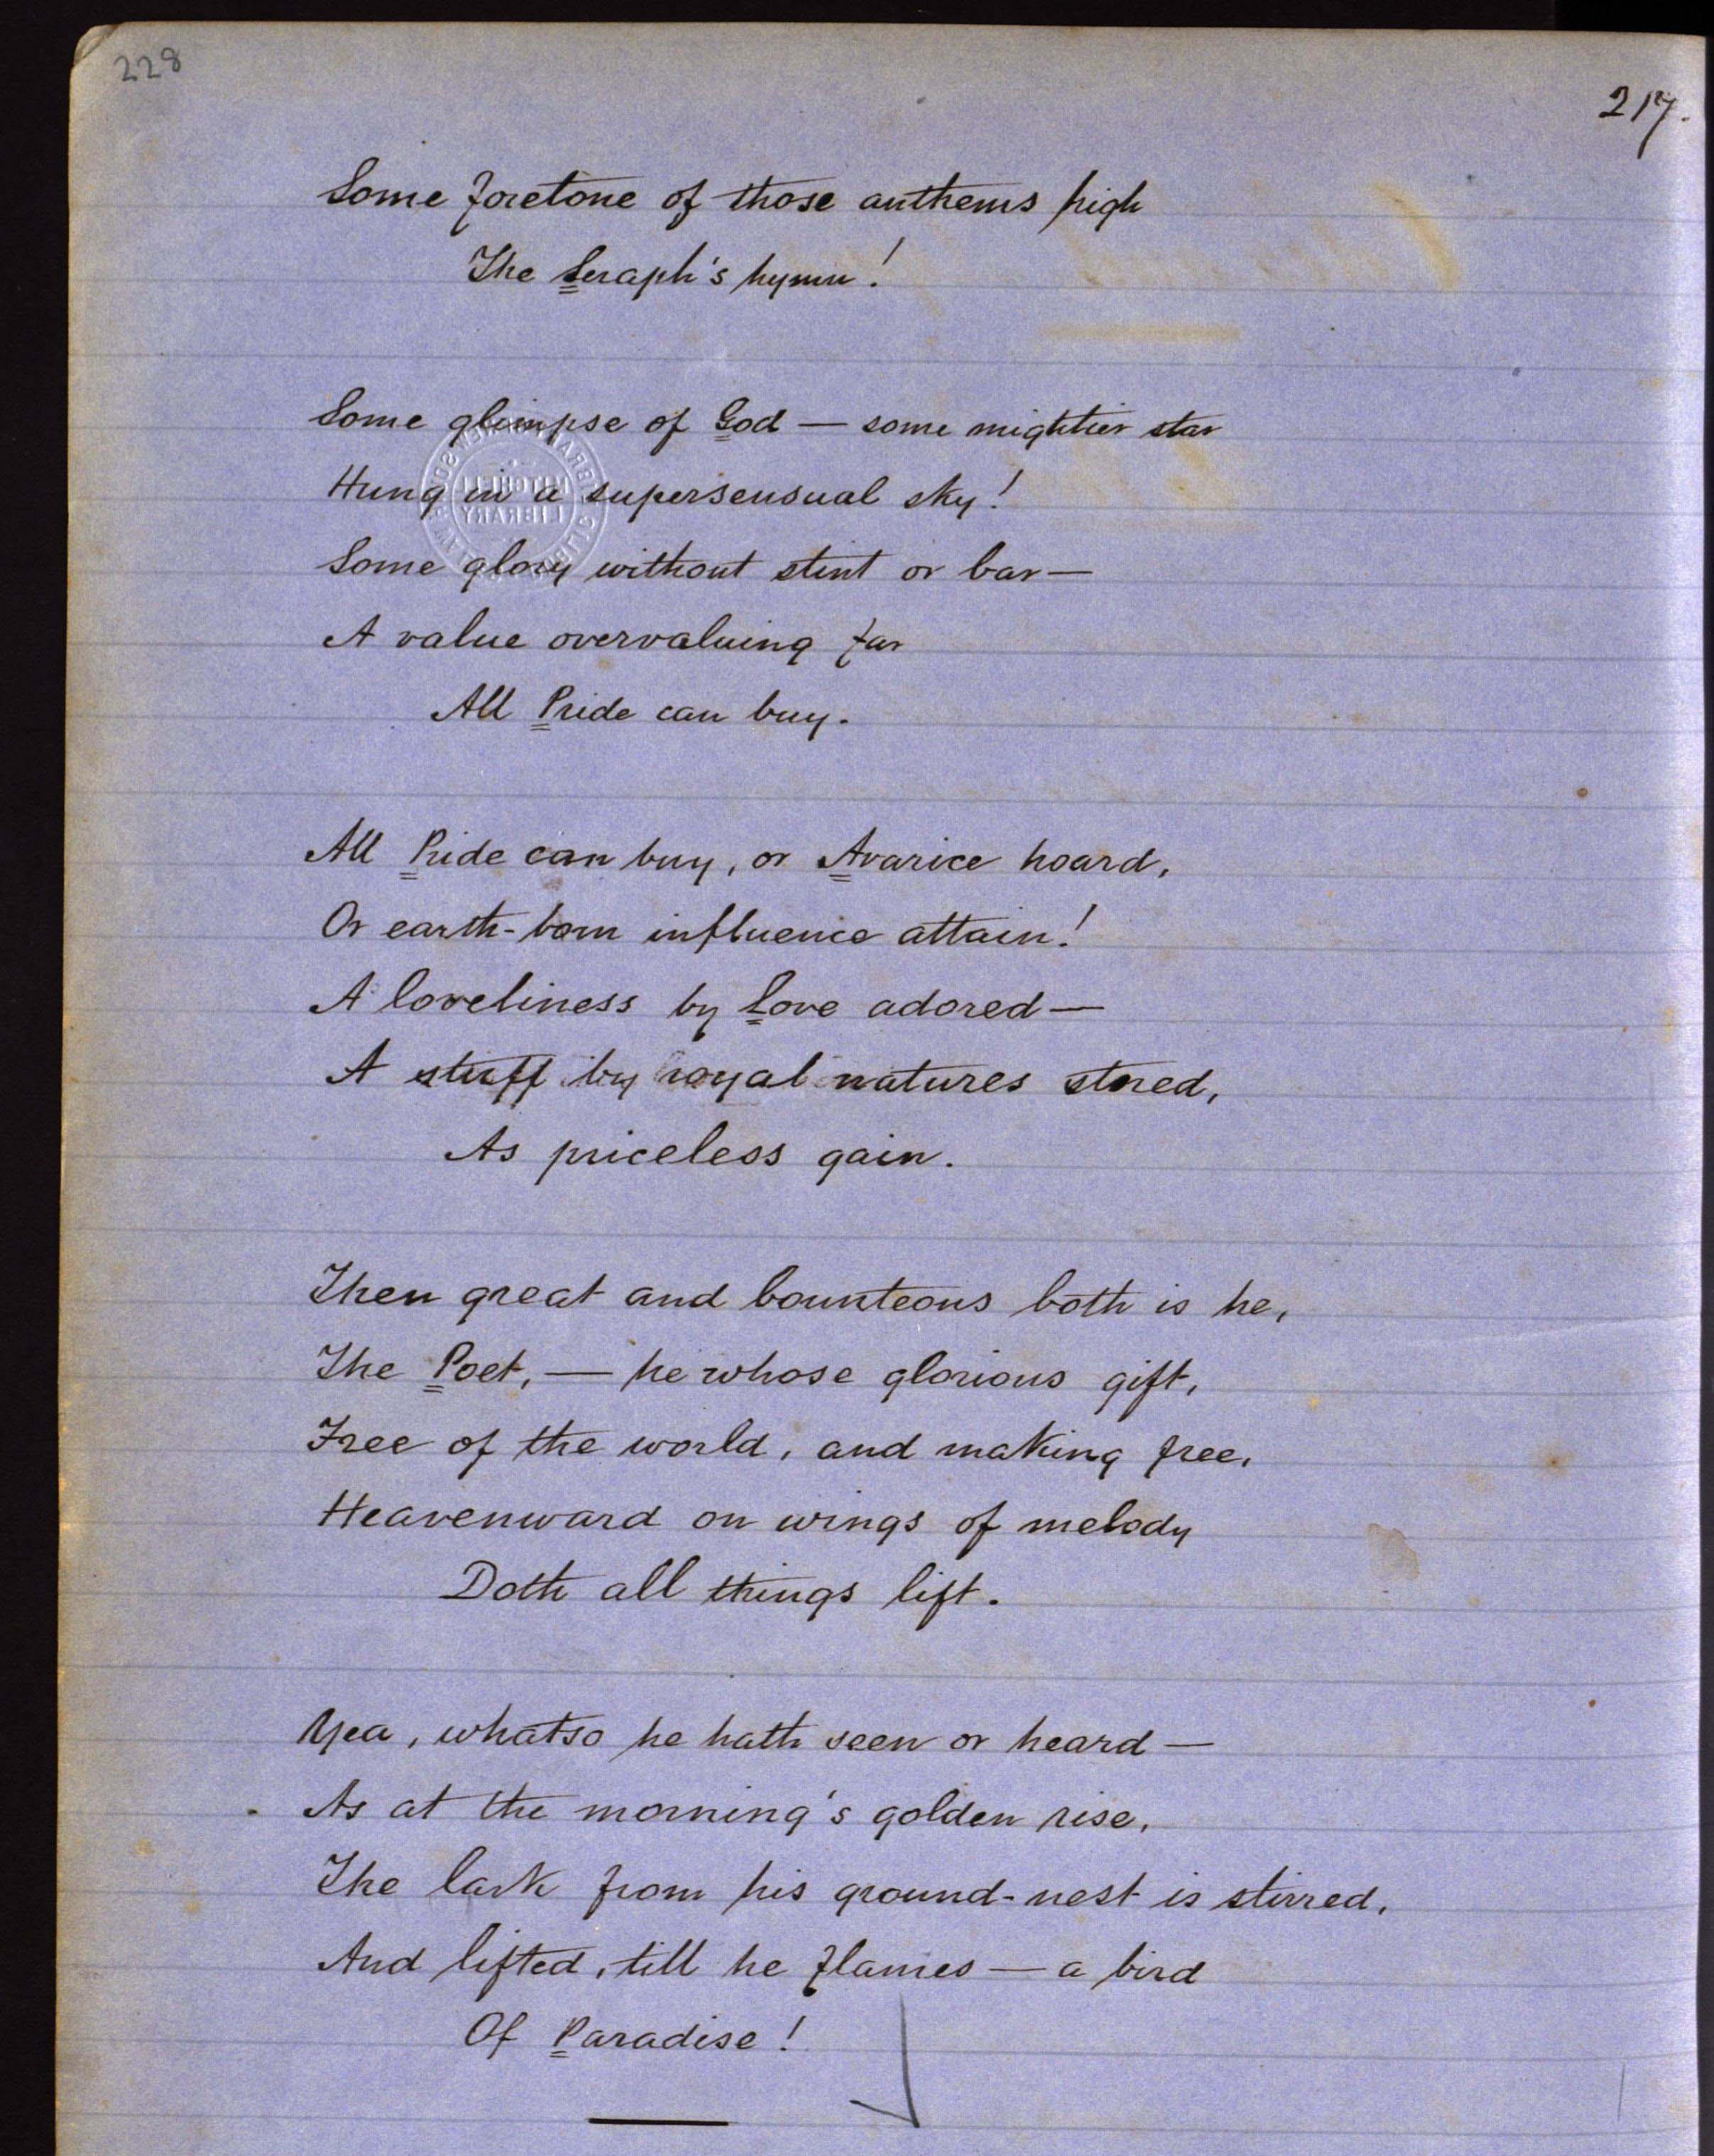 228
217.
Some foretone of those anthems high
The Seraph's hymn!
Some glimpse of God — some mightier star
Hung in a supersensual sky!
Some glory without stint or bar—
A value overvaluing far
All Pride can buy.
All Pride can buy, or Avarice hoard,
Or earth-born influence attain!
A loveliness by Love adored—
A stuff by royal natures stored,
As priceless gain.
Then great and bounteous both is he,
The Poet, — he whose glorious gift,
Free of the world, and making free,
Heavenward on wings of melody
Doth all things lift.
Yea, whatso he hath seen or heard —
As at the morning's golden rise,
The lark from his ground-nest is stirred,
And lifted, till he flames — a bird
Of Paradise!